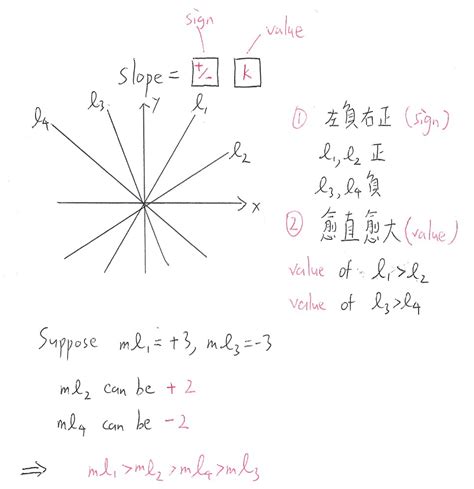 sign
value
slope = +/- k
y
l₃
l₁
l₄
l₂
x
① 左負右正 (sign)
l₁, l₂ 正
l₃, l₄ 負
② 愈直愈大 (value)
value of l₁>l₂
value of l₃>l₄
Suppose ml₁=+3, ml₃=-3
ml₂ can be +2
ml₄ can be -2
⇒ ml₁>ml₂>ml₄>ml₃